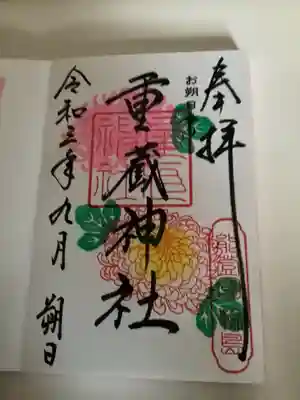 奉拝
お朔日
重蔵神社
令和三年九月朔日